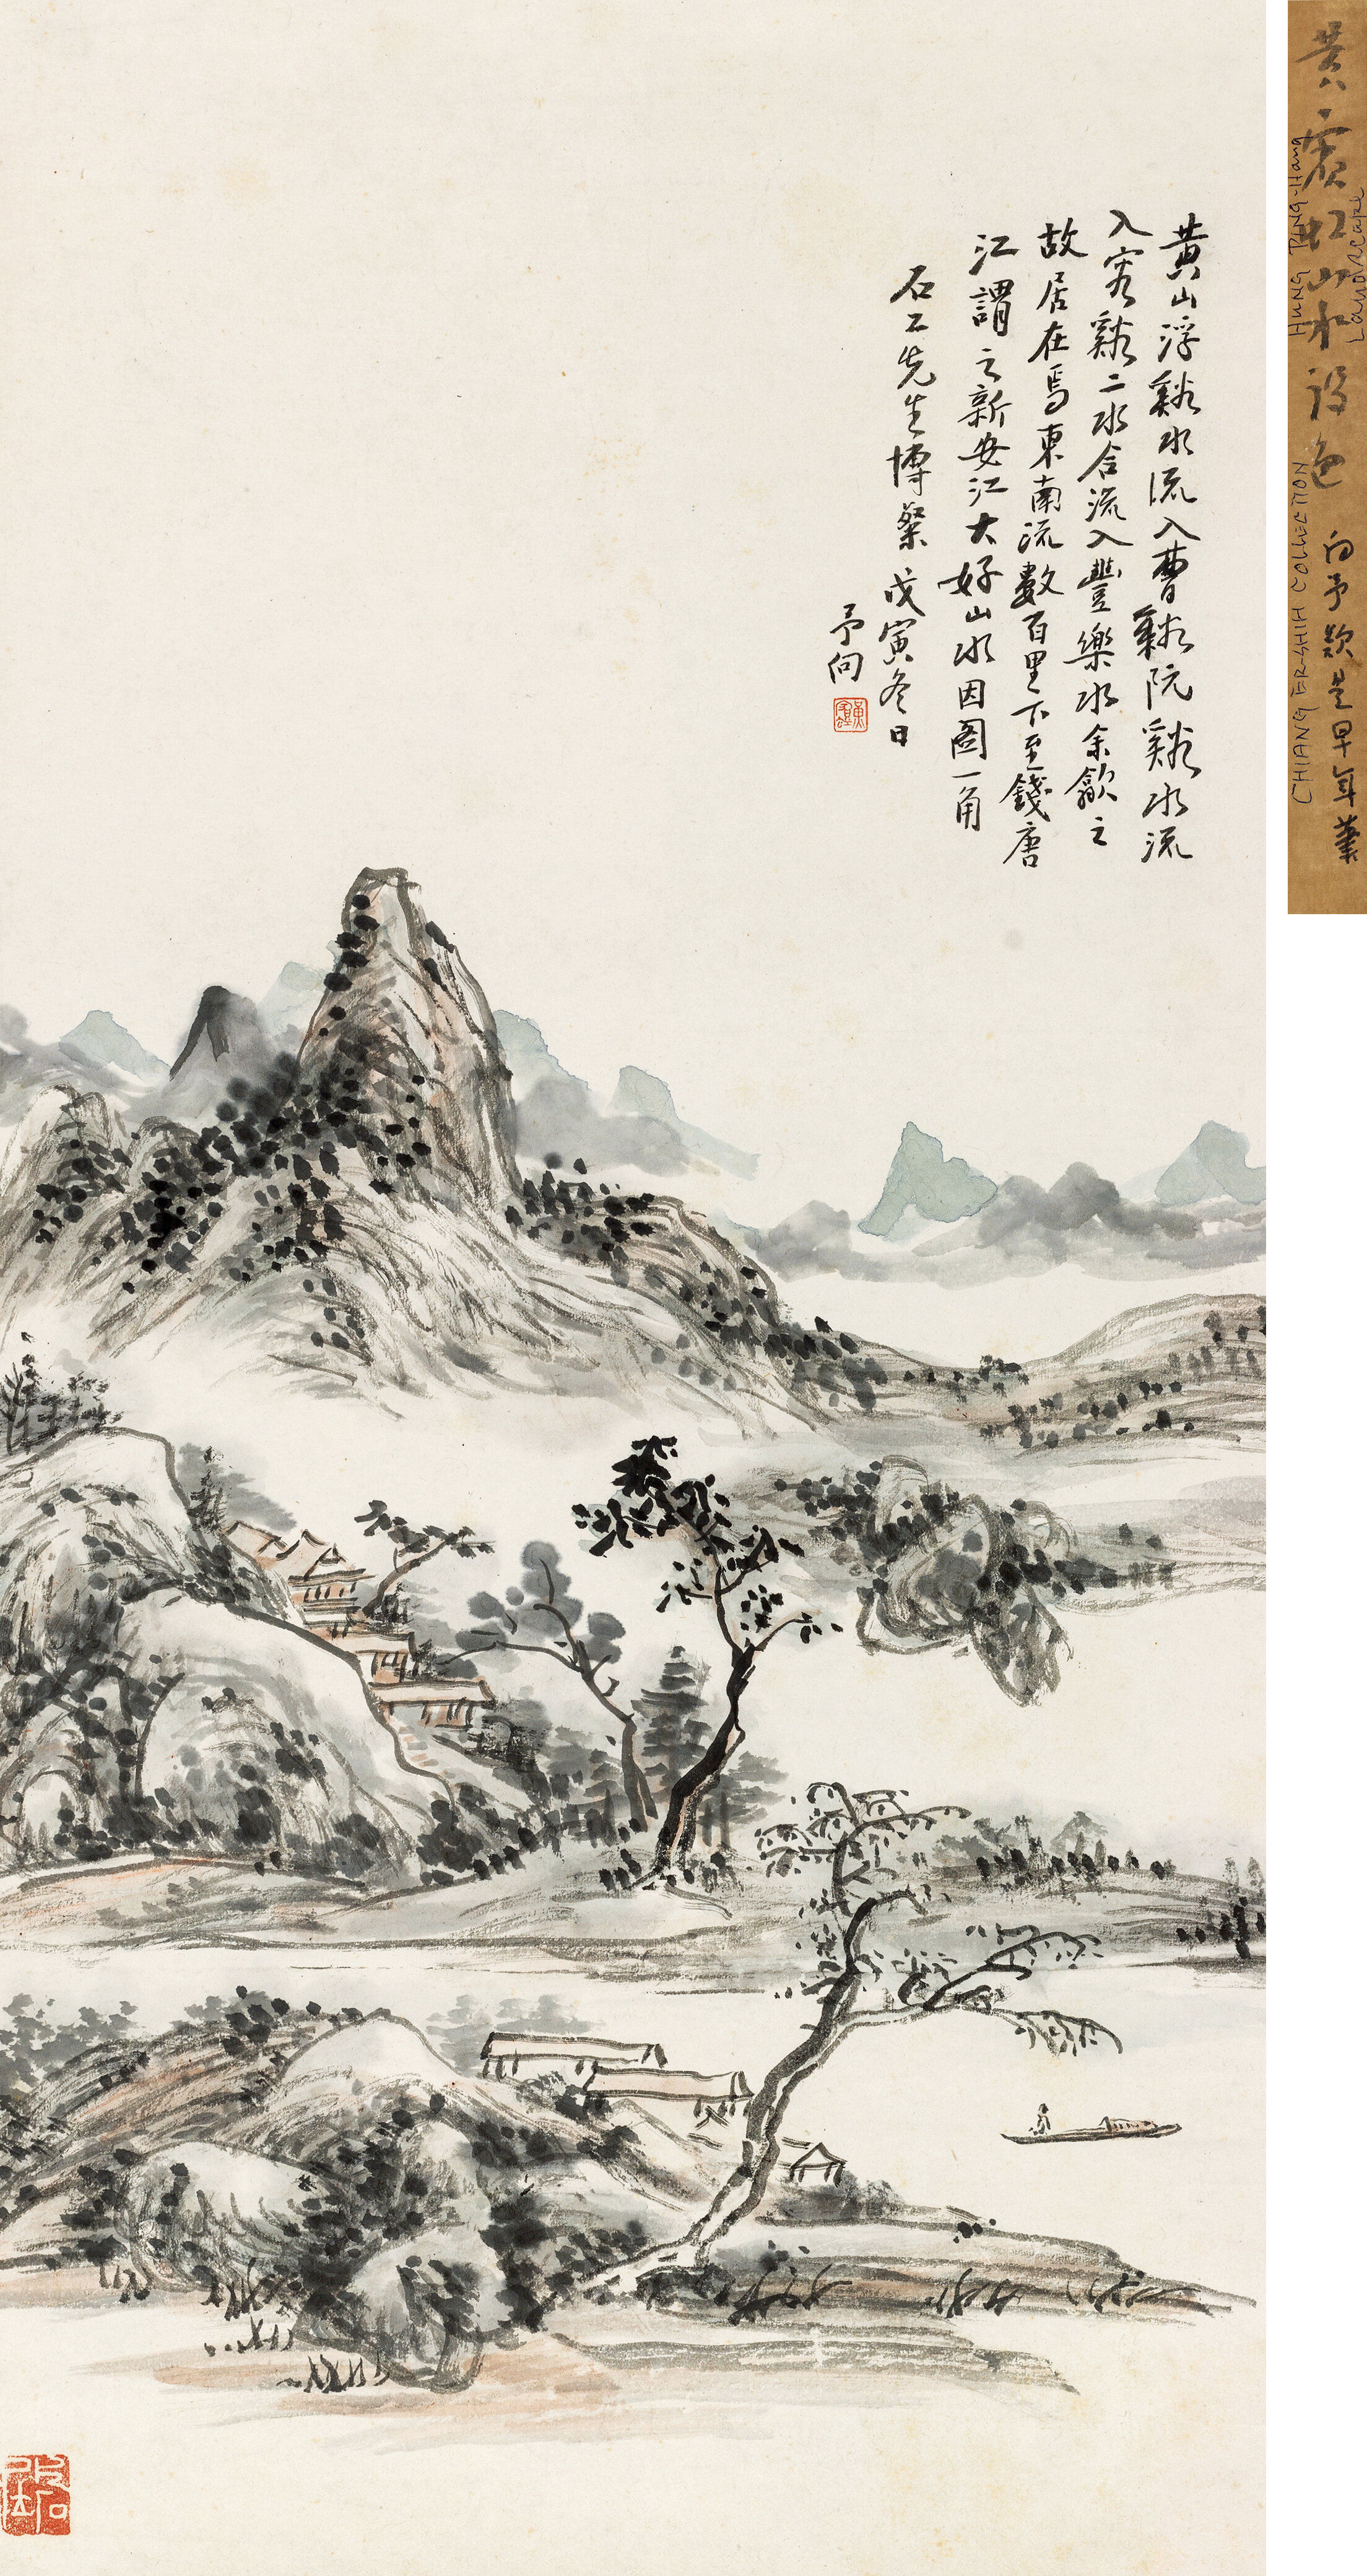 黃山浮谿水流入曹谿阮谿水流
入容谿二水合流入豐樂水余歙之
故居在焉東南流數百里下至錢唐
江謂之新安江大好山水因圖一角
石工先生博粲 戊寅冬日
予向
黃賓虹
黃賓虹山水設色 向予款是早年筆
HUNG PING-HANG
Landscape
CHIANG ER-SHIH COLLECTION